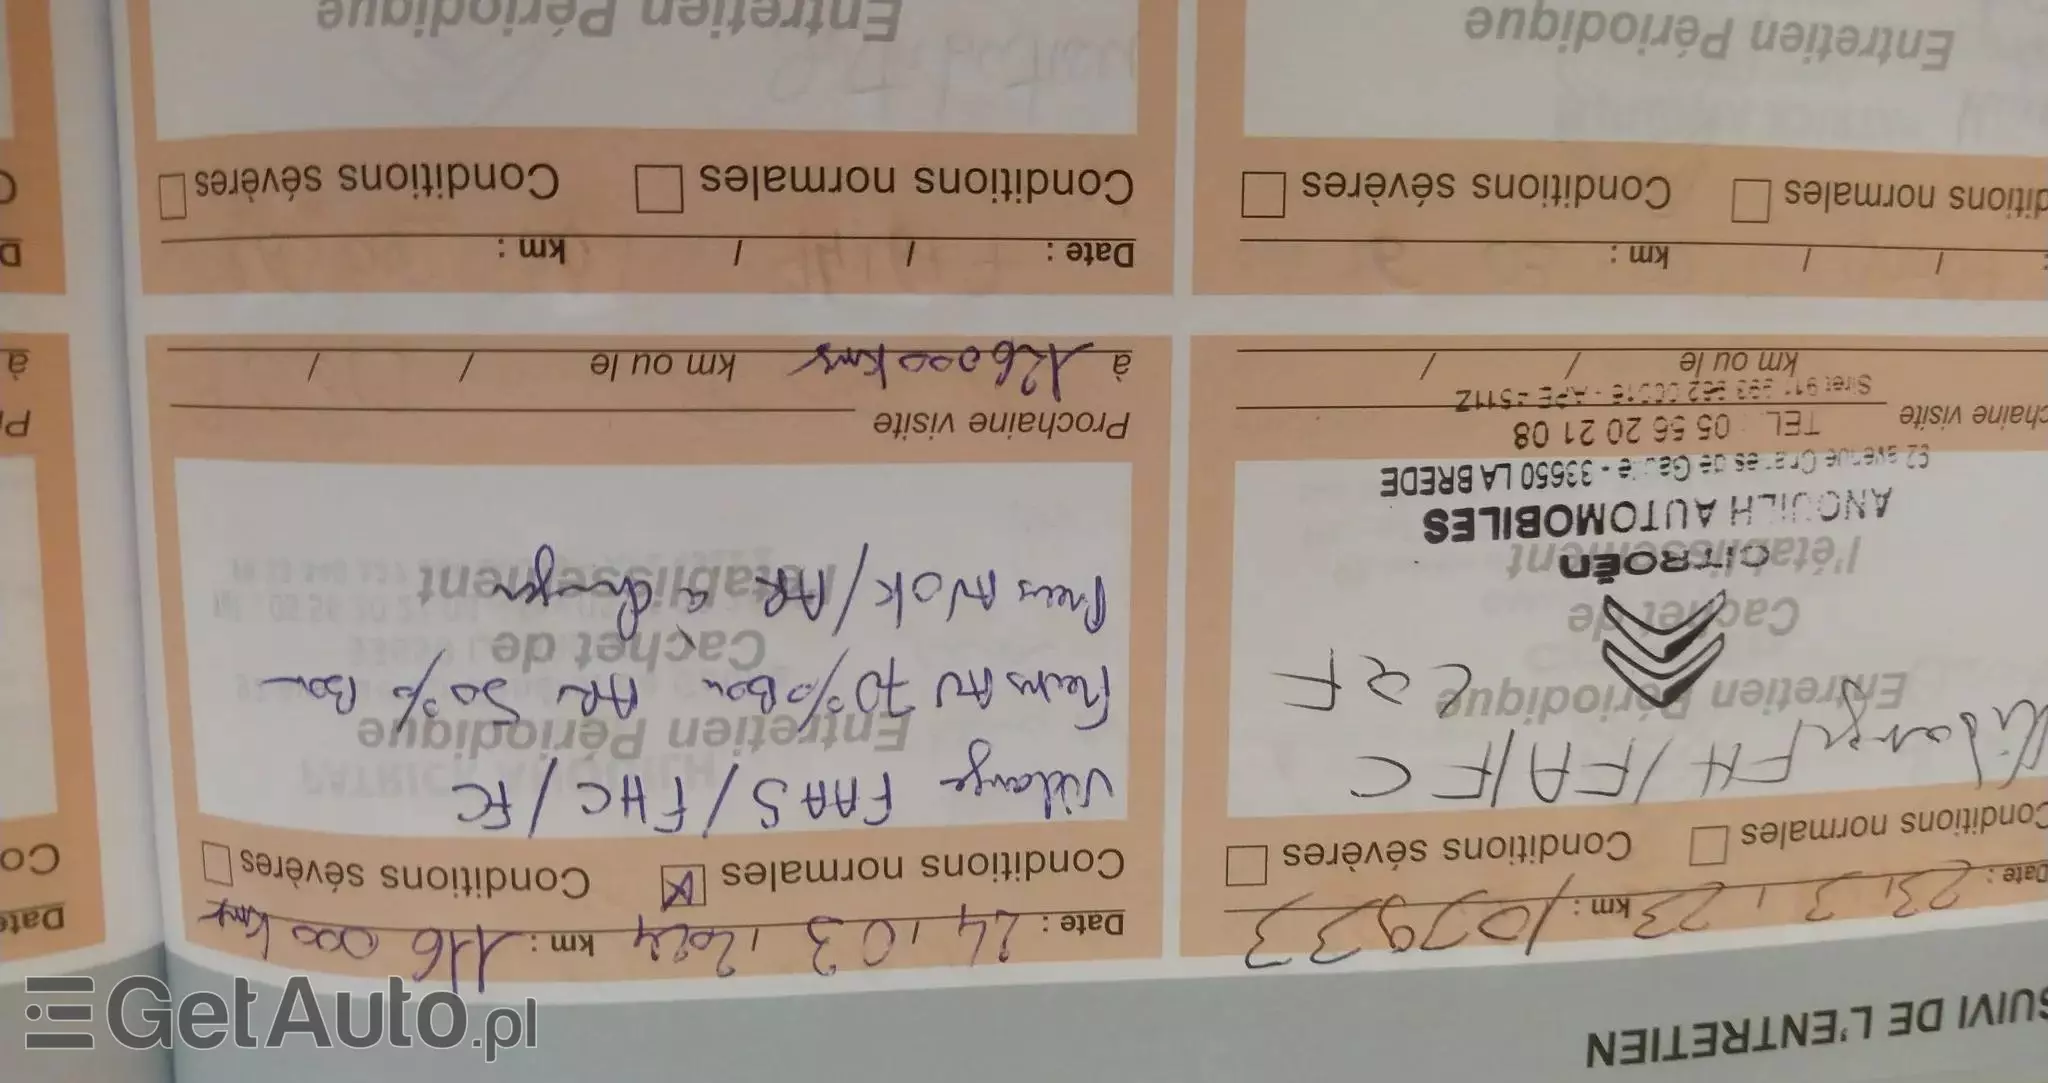 SUIVI DE L'ENTRETIEN
Date : 23, 3, 23 km : 107933
Conditions normales Conditions sévères
Vidange FH/FA/FC
CQF
Entretien Périodique
Cachet de
l'établissement
CITROËN
ANOUILH AUTOMOBILES
62 avenue Charles de Gaulle - 33650 LA BREDE
TEL 05 56 20 21 08
chaine visite
APE 4511Z
km ou le / /
Date : 24, 03, 2024 km : 116 000 kms
Conditions normales Conditions sévères
Vidange FAAS/FHC/FC
Entretien Périodique
Freins AV 70% Bon AR 50% Bon
Cachet de
l'établissement
Pneus AV OK/AR à changer
Prochaine visite
à 126000 kms km ou le / /
: / / km :
ditions normales Conditions sévères
Entretien Périodique
Date : / / km :
Conditions normales Conditions sévères
Entretien Périodique
Date
Co
Pr
à
D
C
GetAuto.pl